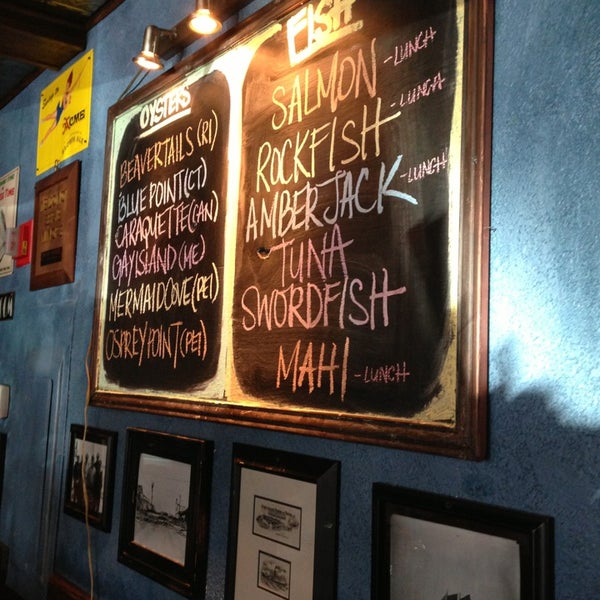 OYSTERS
BEAVERTAILS (RI)
BLUE POINT (CT)
CARAQUETTE (CAN)
GAY ISLAND (ME)
MERMAID COVE (PEI)
OSPREY POINT (PEI)
FISH
SALMON - LUNCH
ROCKFISH - LUNCH
AMBERJACK - LUNCH
TUNA
SWORDFISH
MAHI - LUNCH
ACME